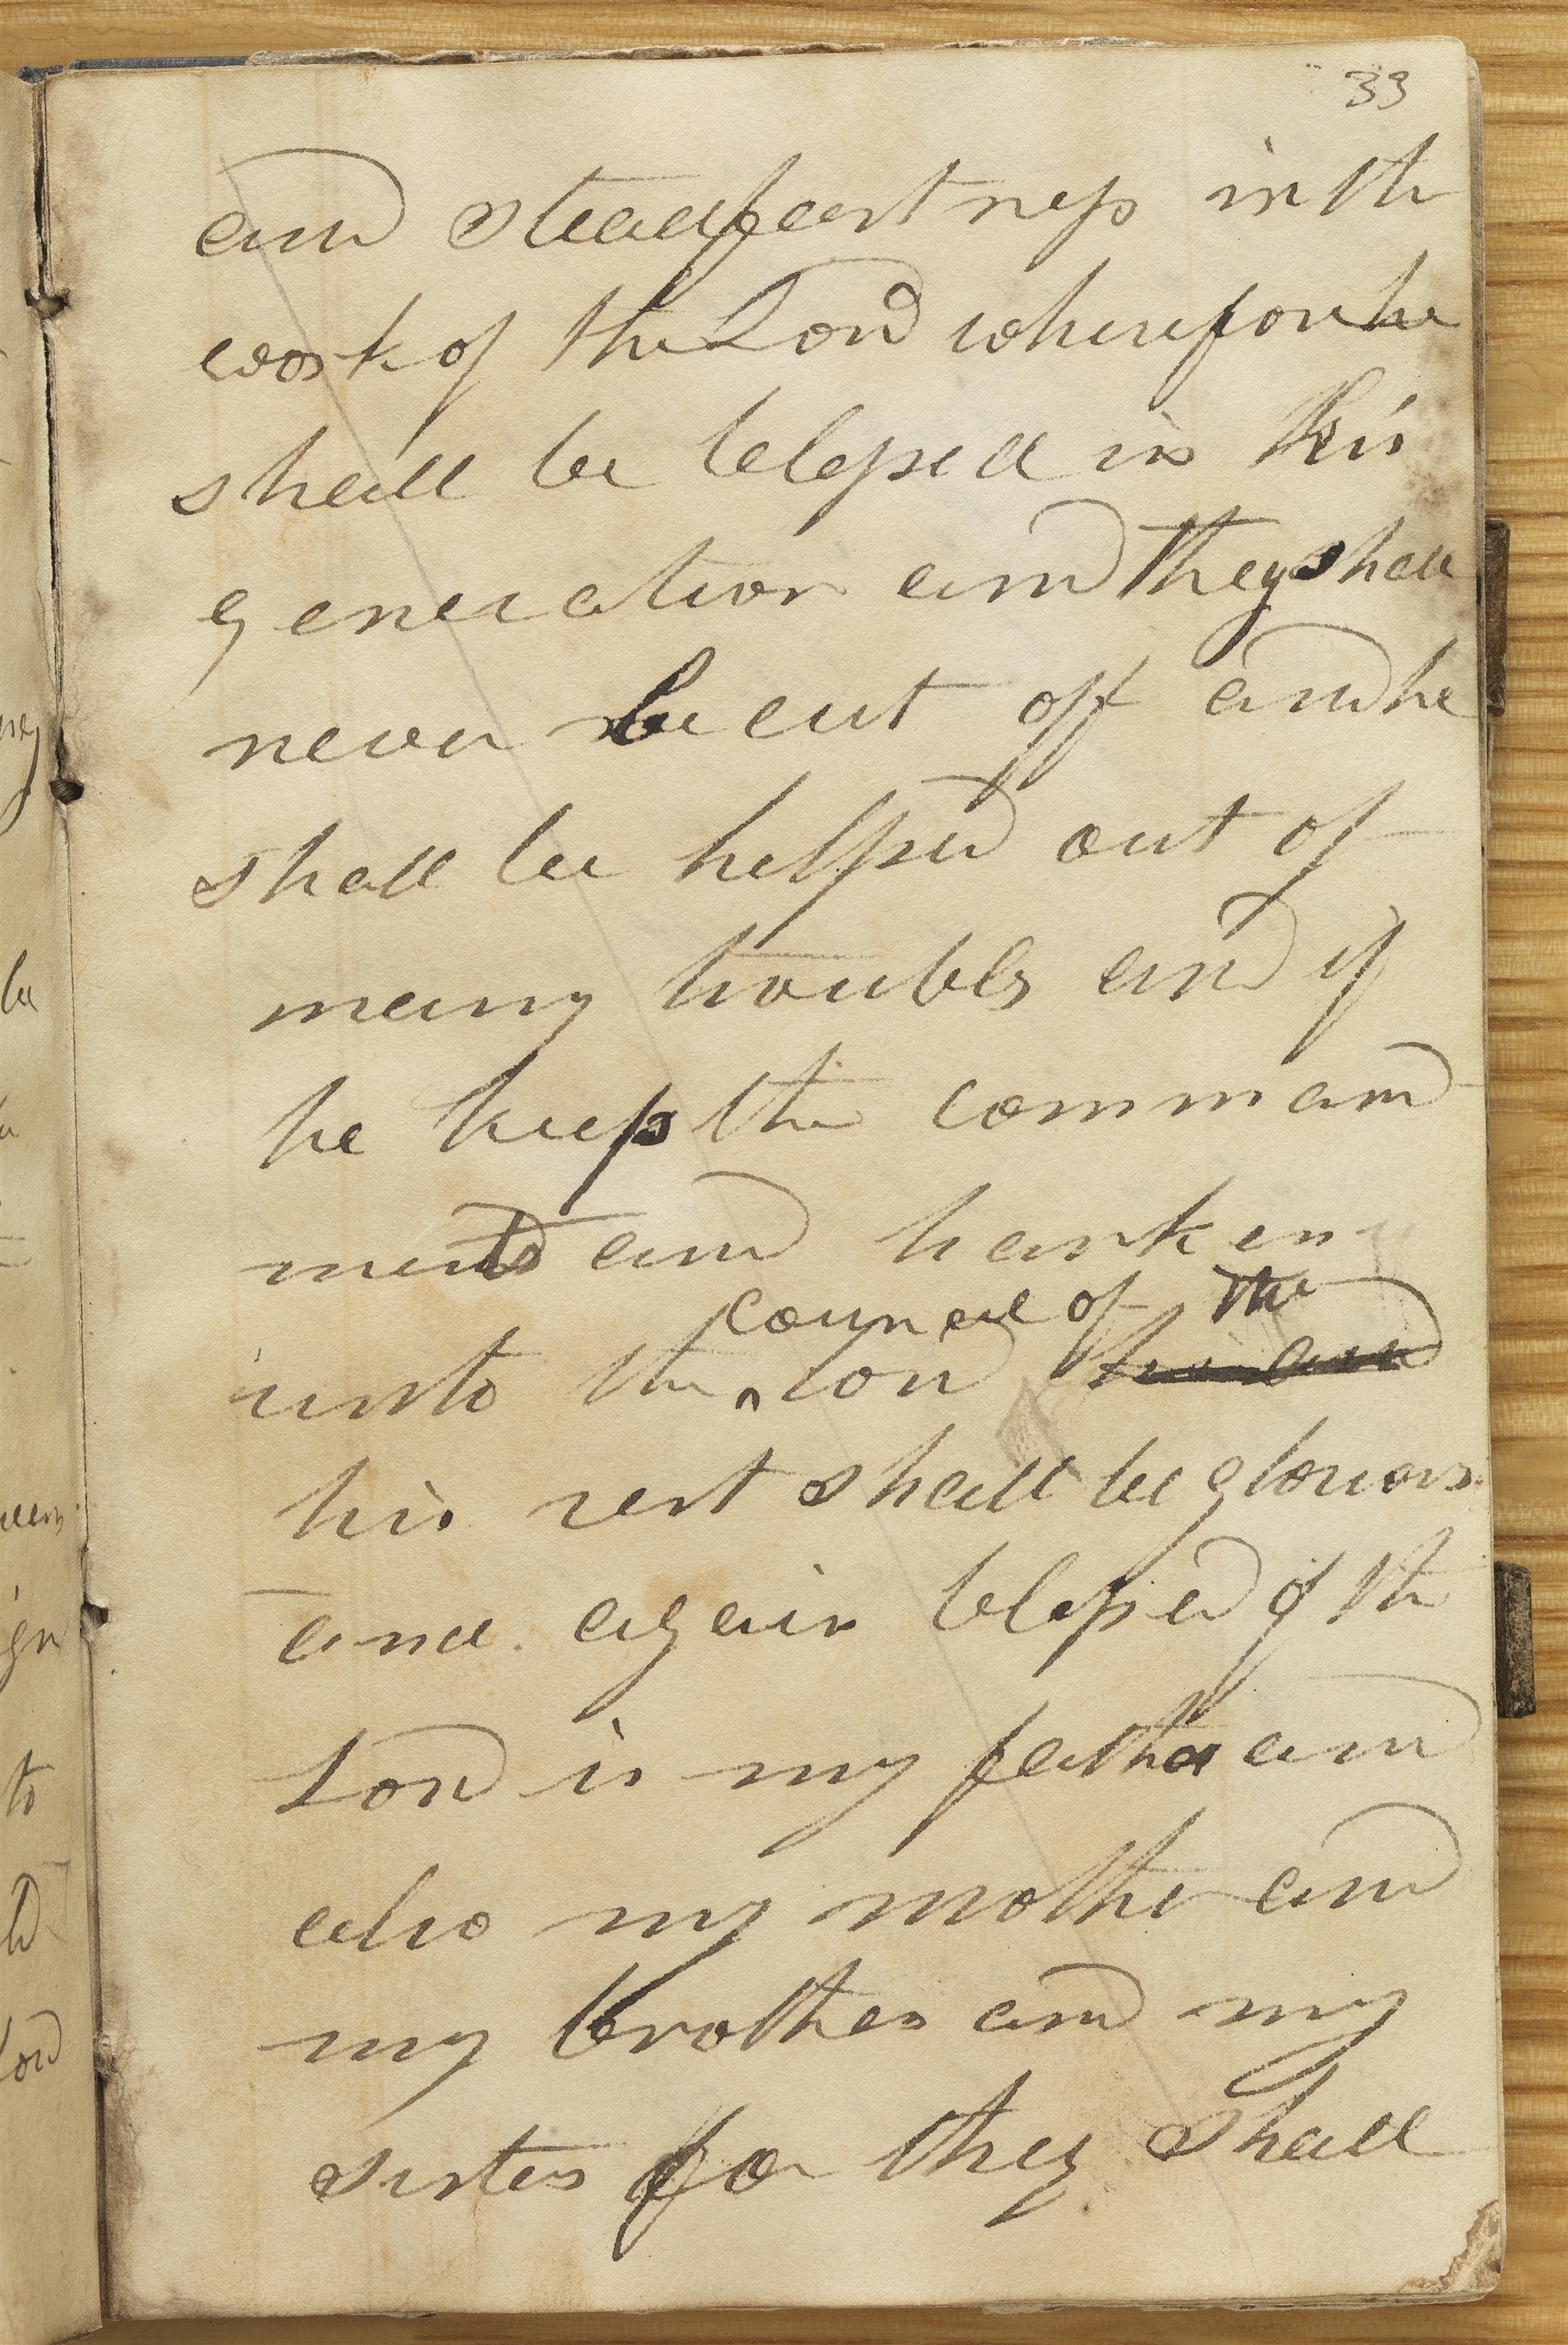 33
and steadfastness in the
work of the Lord wherefore he
shall be blessed in his
generation and they shall
never be cut off and he
shall be helped out of
many troubles and if
he keep the command
ments and harken
council of the
unto the ^ Lord
his rest shall be glorious
and again blessed of the
Lord is my father and
also my mother and
my brothers and my
sisters for they shall